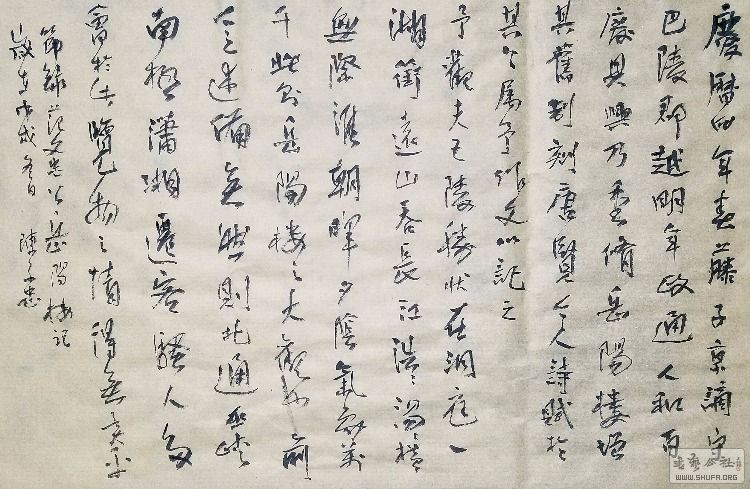 慶曆四年春藤子京謫守
巴陵郡越明年政通人和百
廢具興乃重脩岳陽樓增
其舊制刻唐賢今人詩賦於
其上属予作文以記之
予觀夫巴陵勝狀在洞庭一
湖銜遠山吞長江浩浩湯湯橫
無際涯朝暉夕陰氣象萬
千此則岳陽樓之大觀也前
人之述備矣然則北通巫峽
南極瀟湘遷客騷人多
會於此覽物之情得無異乎
節錄范文忠公岳陽樓記
歲在戊戌冬日 陳忠
WWW.SHUFA.ORG